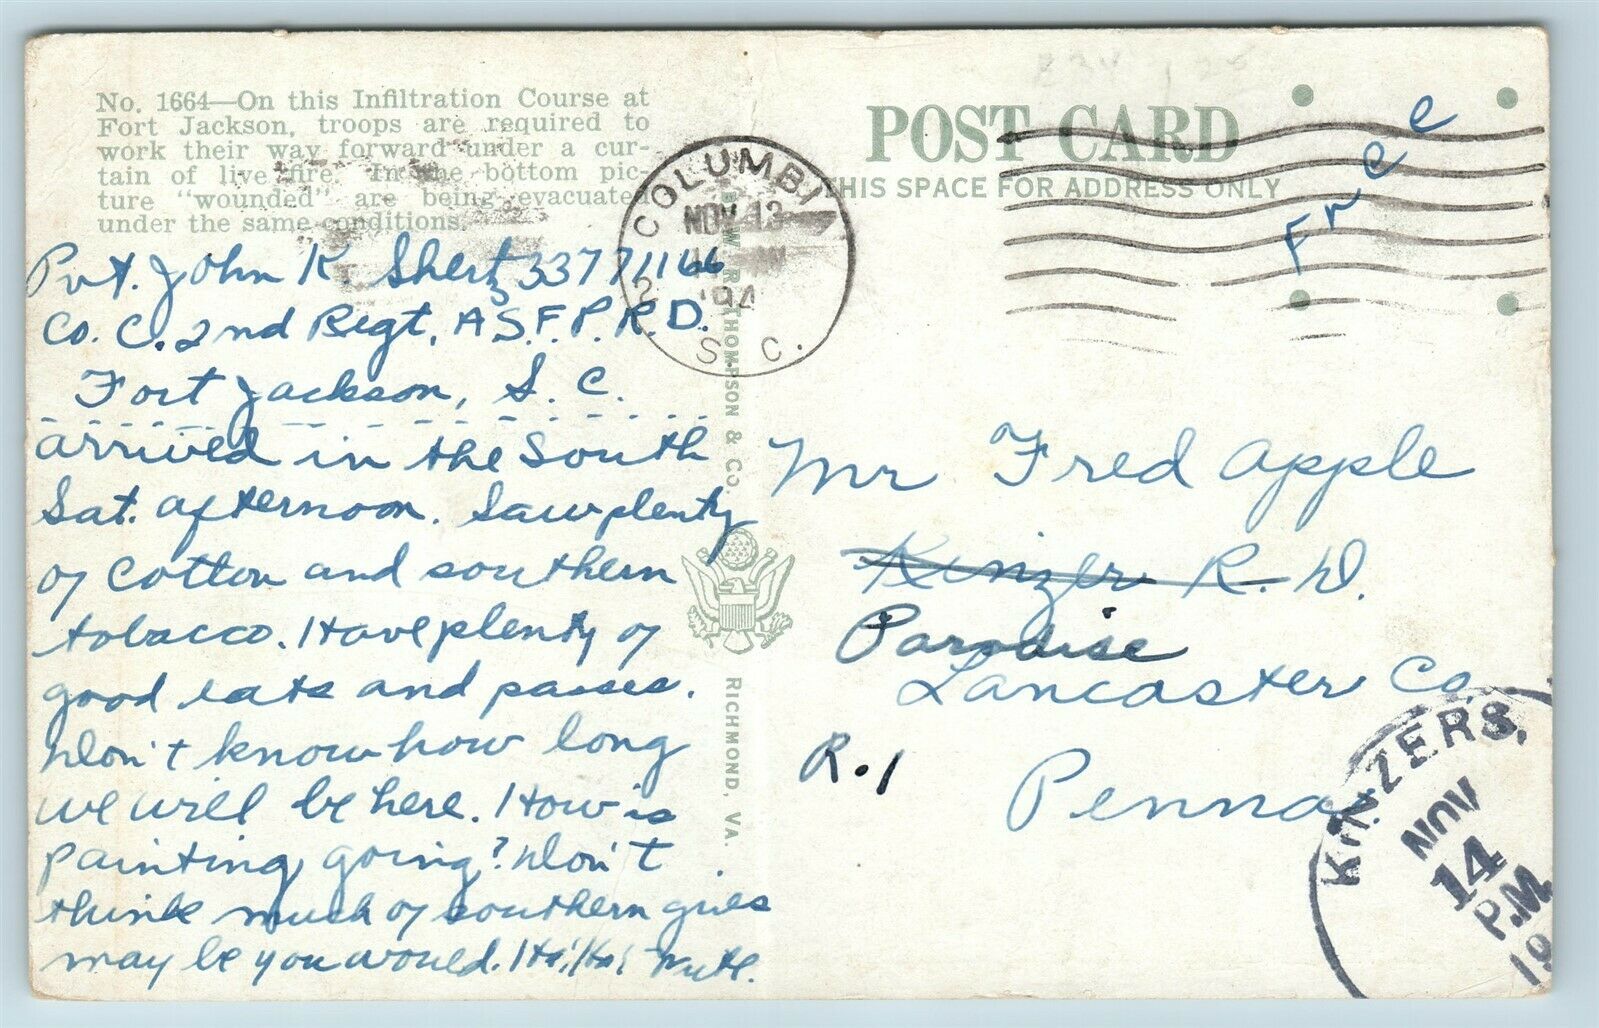 No. 1664—On this Infiltration Course at
Fort Jackson, troops are required to
work their way forward under a cur-
tain of live fire. In the bottom pic-
ture "wounded" are being evacuated
under the same conditions.
Pvt. John K. Shertz 33771166
Co. C. 2nd Regt. A S. F. P. R. D.
Fort Jackson, S. C.
arrived in the South
Sat. afternoon. Saw plenty
of cotton and southern
tobacco. Have plenty of
good eats and passes.
Don't know how long
we will be here. How is
painting going? Don't
think much of southern
may be you would. Ha! Ha!
COLUMBI
NOV 13
194
S. C.
RICHMOND, VA.
THOMPSON & CO.
POST CARD
THIS SPACE FOR ADDRESS ONLY
Free
Mr Fred Apple
Kinzer R. D.
Paradise
Lancaster Co
R. 1
Penna.
KINZERS,
NOV
14
P.M.
19